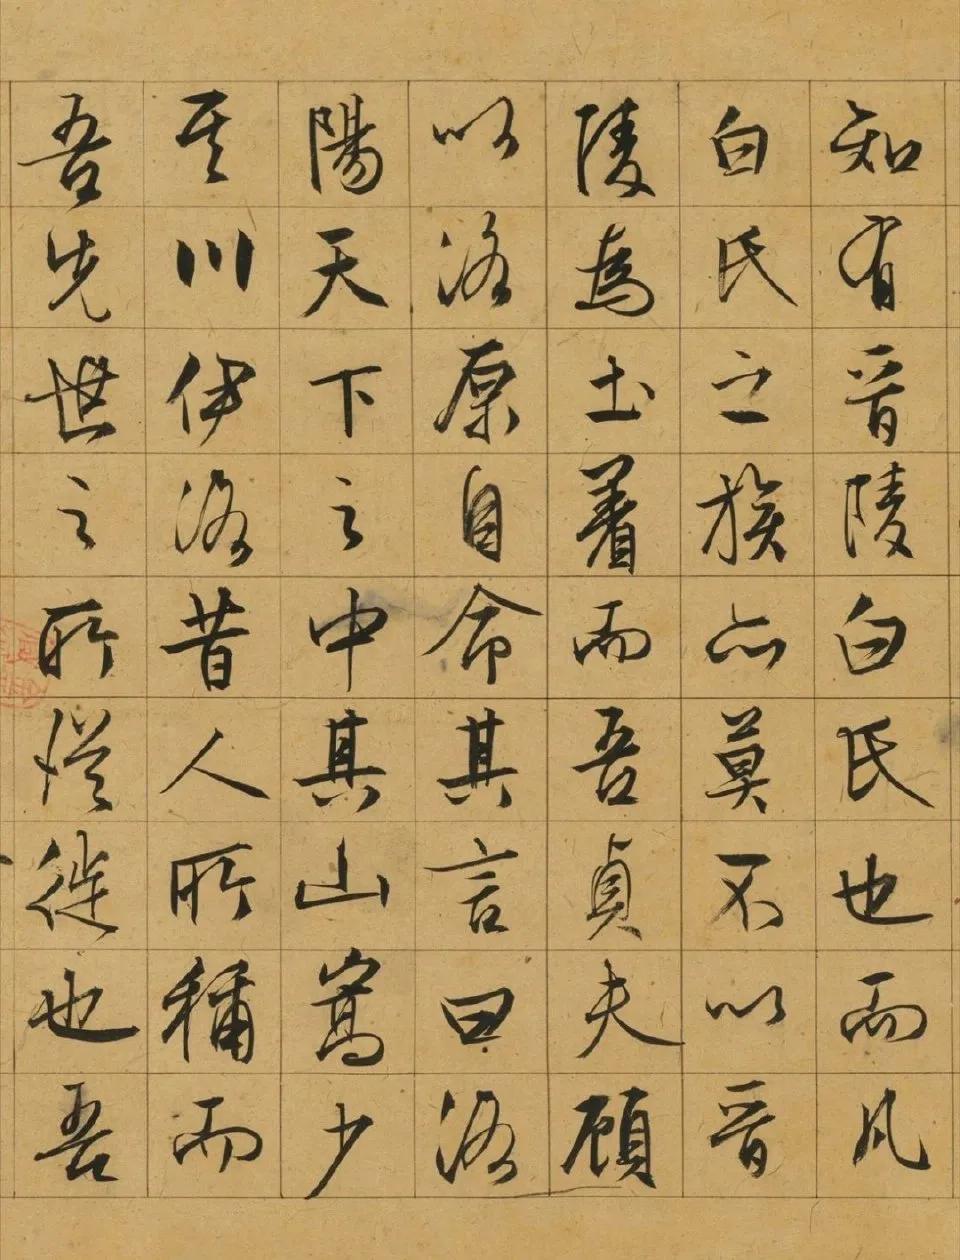 知有晉陵白氏也而凡
白氏之族亦莫不以晉
陵為土著而吾貞夫顧
以洛原自命其言曰洛
陽天下之中其山嵩少
其川伊洛昔人所稱而
吾先世之所從徙也吾